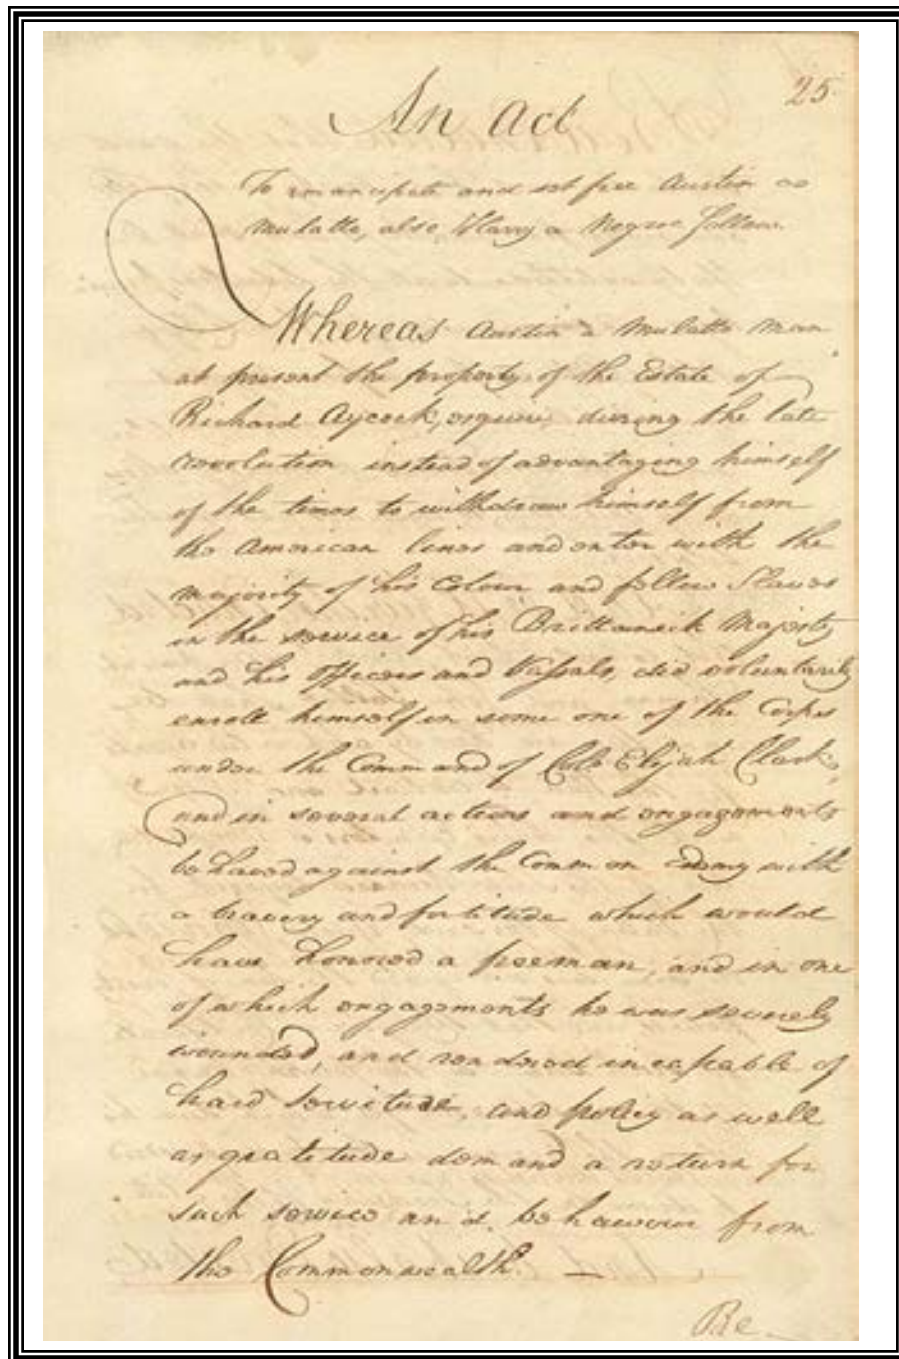 25
An Act
To emancipate and set free Austin a
Mulatto, also Harry a Negroe fellow.
Whereas Austin a Mulatto Man
at present the property of the Estate of
Richard Aycock, esquire, during the late
revolution instead of advantaging himself
of the times to withdraw himself from
the American lines and enter with the
majority of his Colour and fellow Slaves
in the service of his Brittanick Majesty
and his officers and Vassals, did voluntarily
enroll himself in some one of the Corps
under the Command of Colo. Elijah Clark,
and in several actions and engagements
behaved against the Common Enemy with
a bravery and fortitude which would
have honored a freeman, and in one
of which engagements he was severely
wounded, and rendered incapable of
hard servitude, and policy as well
as gratitude demand a return for
such service and behaviour from
the Commonwealth. —
Be